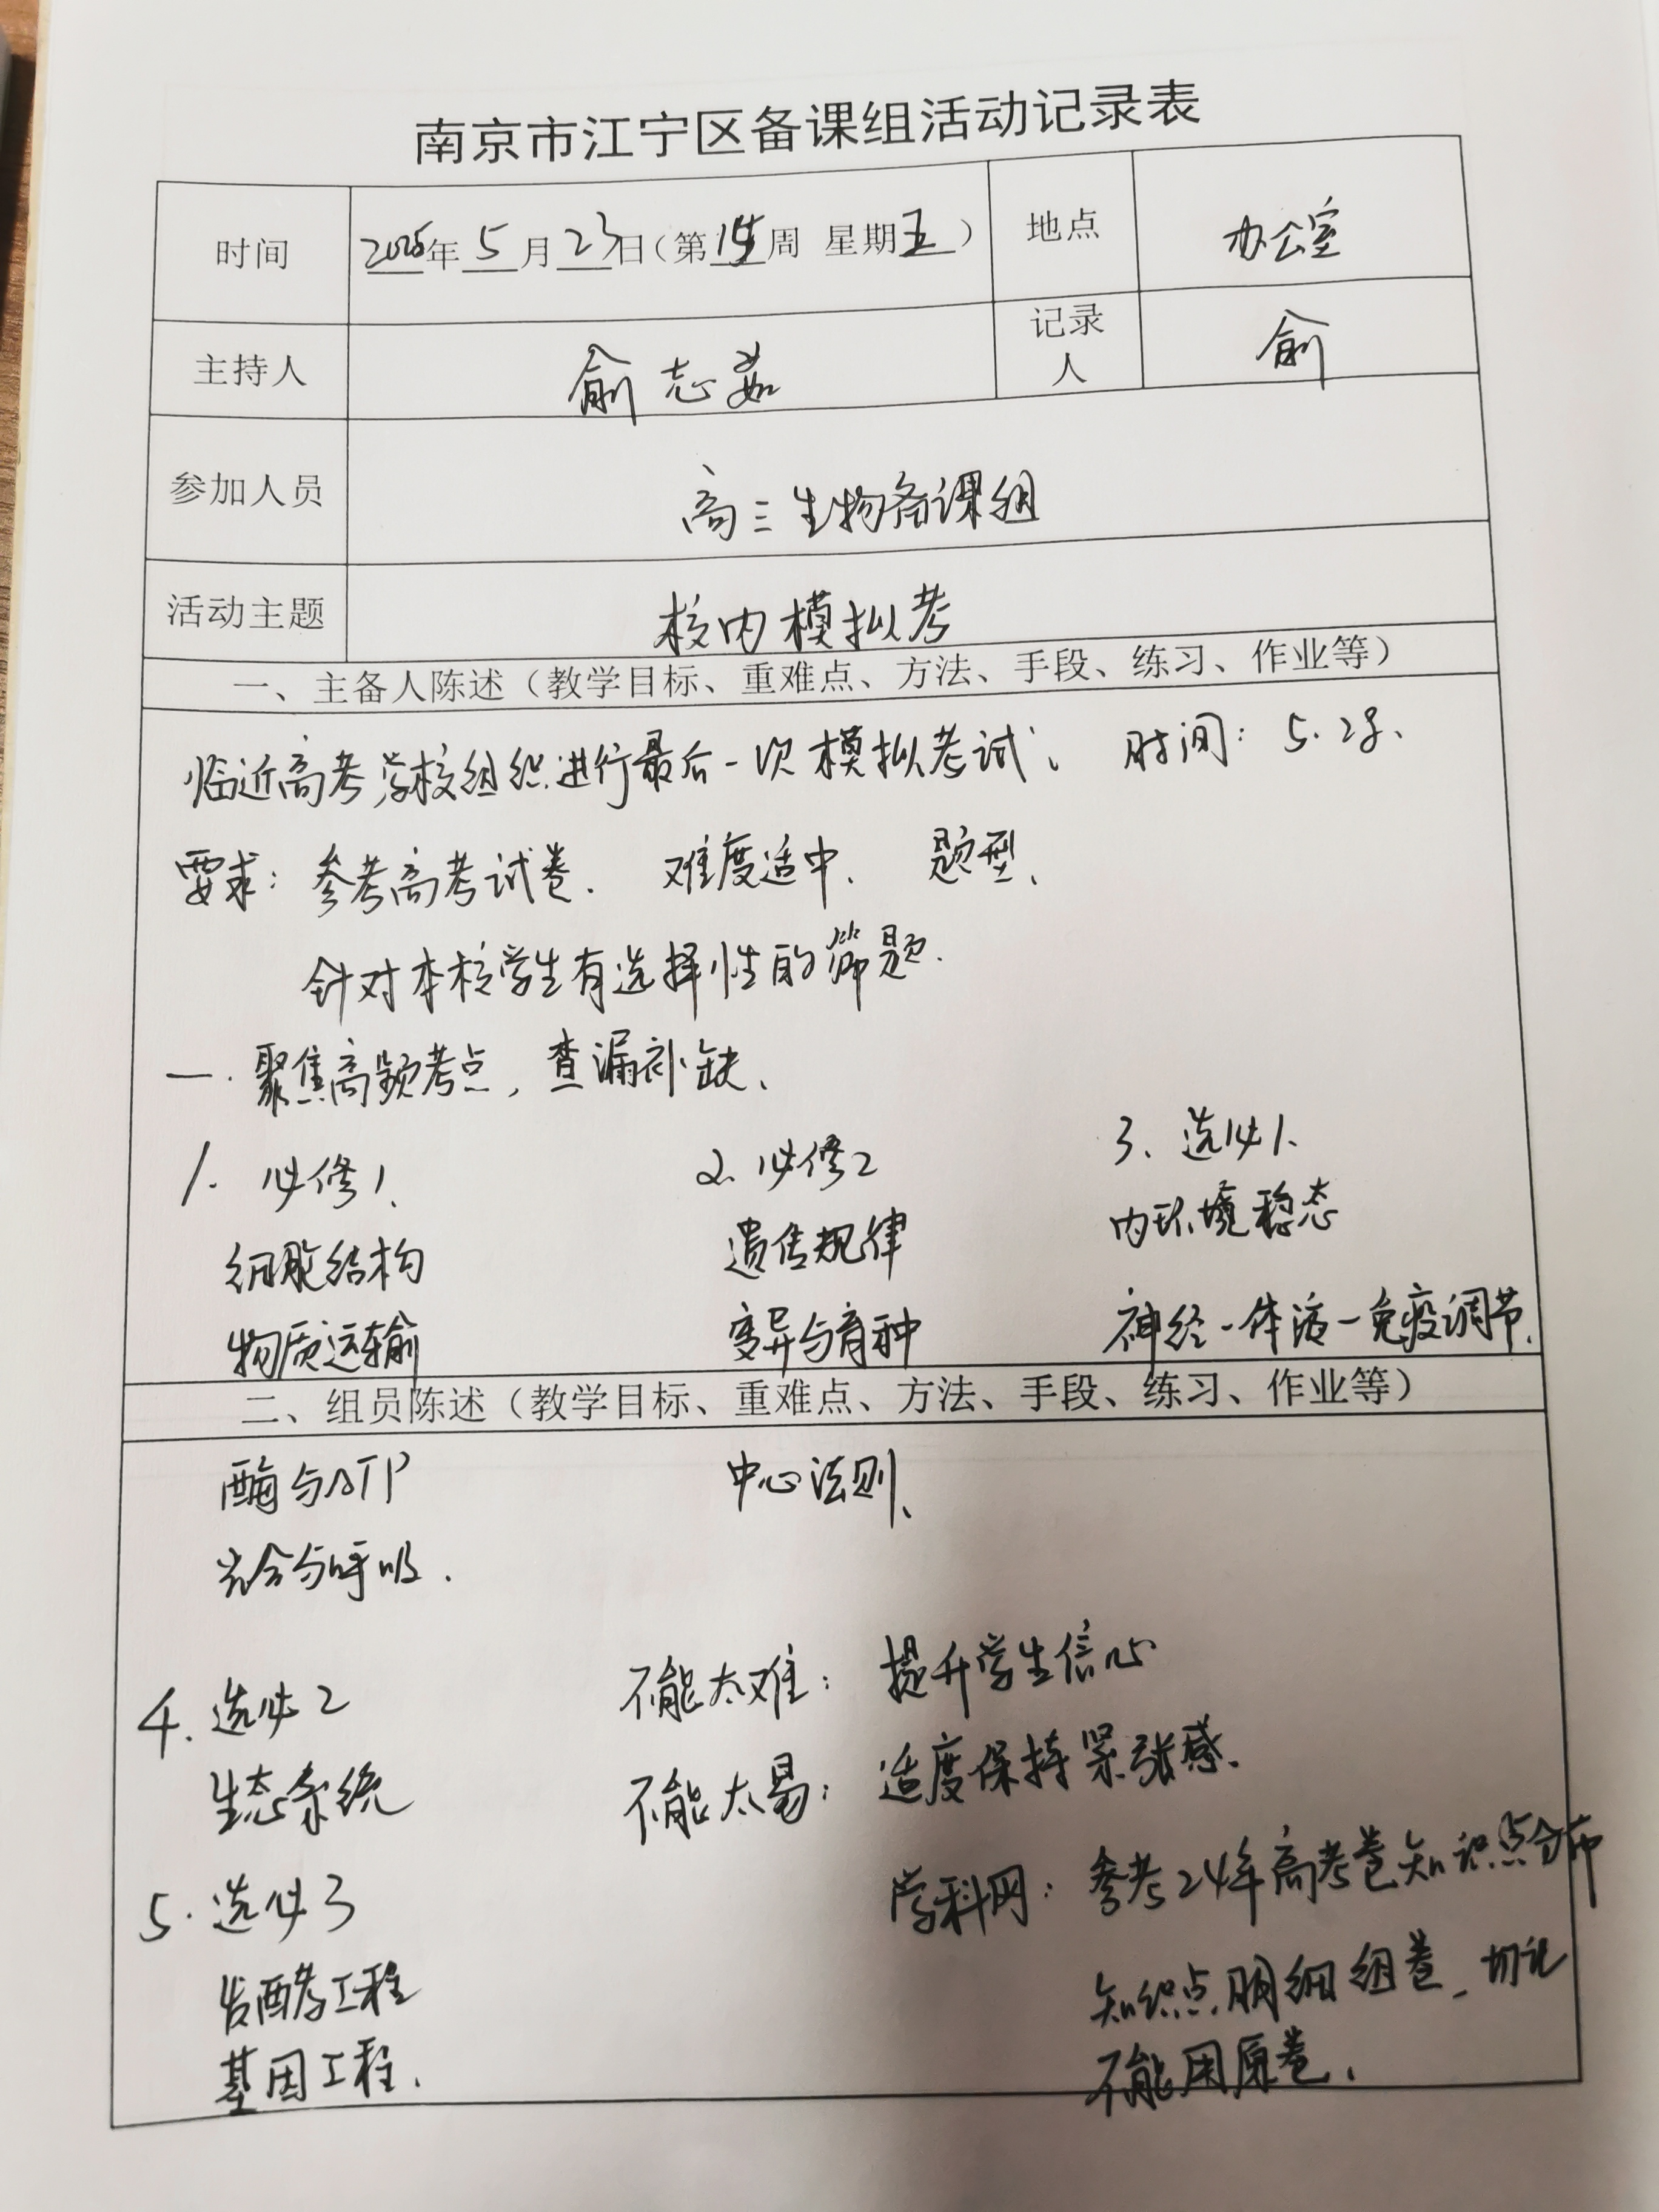 南京市江宁区备课组活动记录表
时间 2025年5月23日(第15周 星期五) 地点 办公室
主持人 俞志茹 记录人 俞
参加人员 高三生物备课组
活动主题 校内模拟考
一、主备人陈述(教学目标、重难点、方法、手段、练习、作业等)
临近高考,学校组织进行最后一次模拟考试。 时间:5.28、
要求:参考高考试卷. 难度适中、 题型、
针对本校学生有选择性的筛题.
一.聚焦高频考点,查漏补缺、
1. 必修1、 2. 必修2 3、选必1、
细胞结构 遗传规律 内环境稳态
物质运输 变异与育种 神经-体液-免疫调节.
二、组员陈述(教学目标、重难点、方法、手段、练习、作业等)
酶与ATP 中心法则、
光合与呼吸.
4. 选必2 不能太难:提升学生信心
生态系统 不能太易:适度保持紧张感.
5. 选必3 学科网:参考24年高考卷知识点分布
发酵工程 知识点明细组卷,切记
基因工程. 不能用原卷.